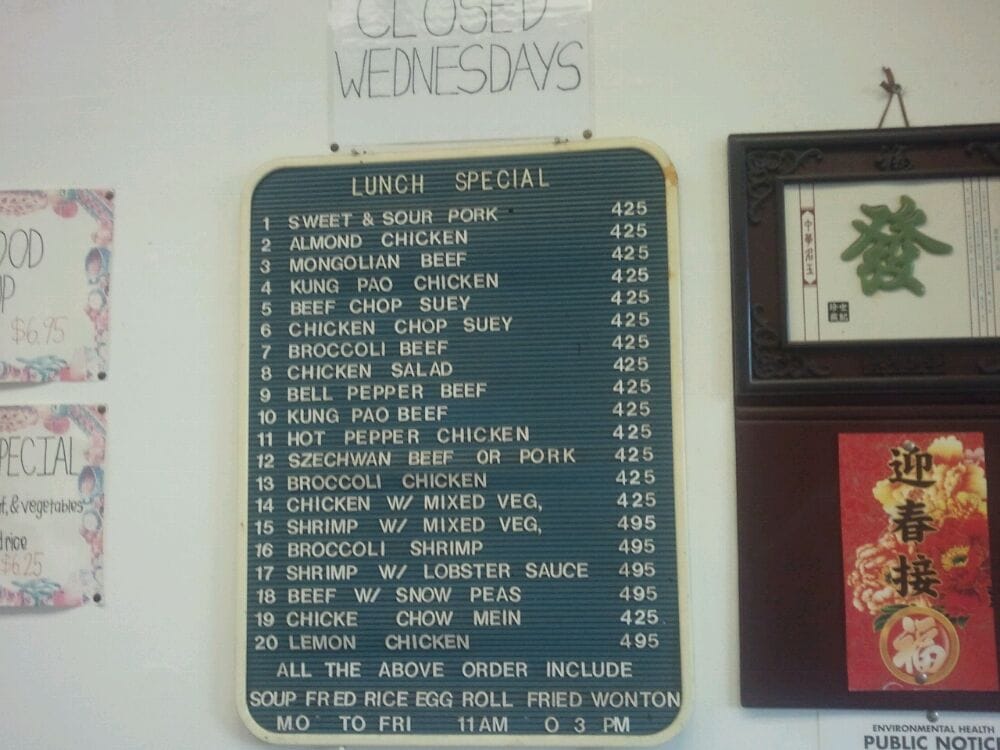 CLOSED
WEDNESDAYS
LUNCH SPECIAL
1 SWEET & SOUR PORK 425
2 ALMOND CHICKEN 425
3 MONGOLIAN BEEF 425
4 KUNG PAO CHICKEN 425
5 BEEF CHOP SUEY 425
6 CHICKEN CHOP SUEY 425
7 BROCCOLI BEEF 425
8 CHICKEN SALAD 425
9 BELL PEPPER BEEF 425
10 KUNG PAO BEEF 425
11 HOT PEPPER CHICKEN 425
12 SZECHWAN BEEF OR PORK 425
13 BROCCOLI CHICKEN 425
14 CHICKEN W/ MIXED VEG, 425
15 SHRIMP W/ MIXED VEG, 495
16 BROCCOLI SHRIMP 495
17 SHRIMP W/ LOBSTER SAUCE 495
18 BEEF W/ SNOW PEAS 495
19 CHICKE CHOW MEIN 425
20 LEMON CHICKEN 495
ALL THE ABOVE ORDER INCLUDE
SOUP FR ED RICE EGG ROLL FRIED WONTON
MO TO FRI 11 AM O 3 PM
OOD
P
$6.95
PECIAL
f, & vegetables
d rice
$6.25
發
中華名玉
迎
春
接
福
ENVIRONMENTAL HEALTH
PUBLIC NOTIC